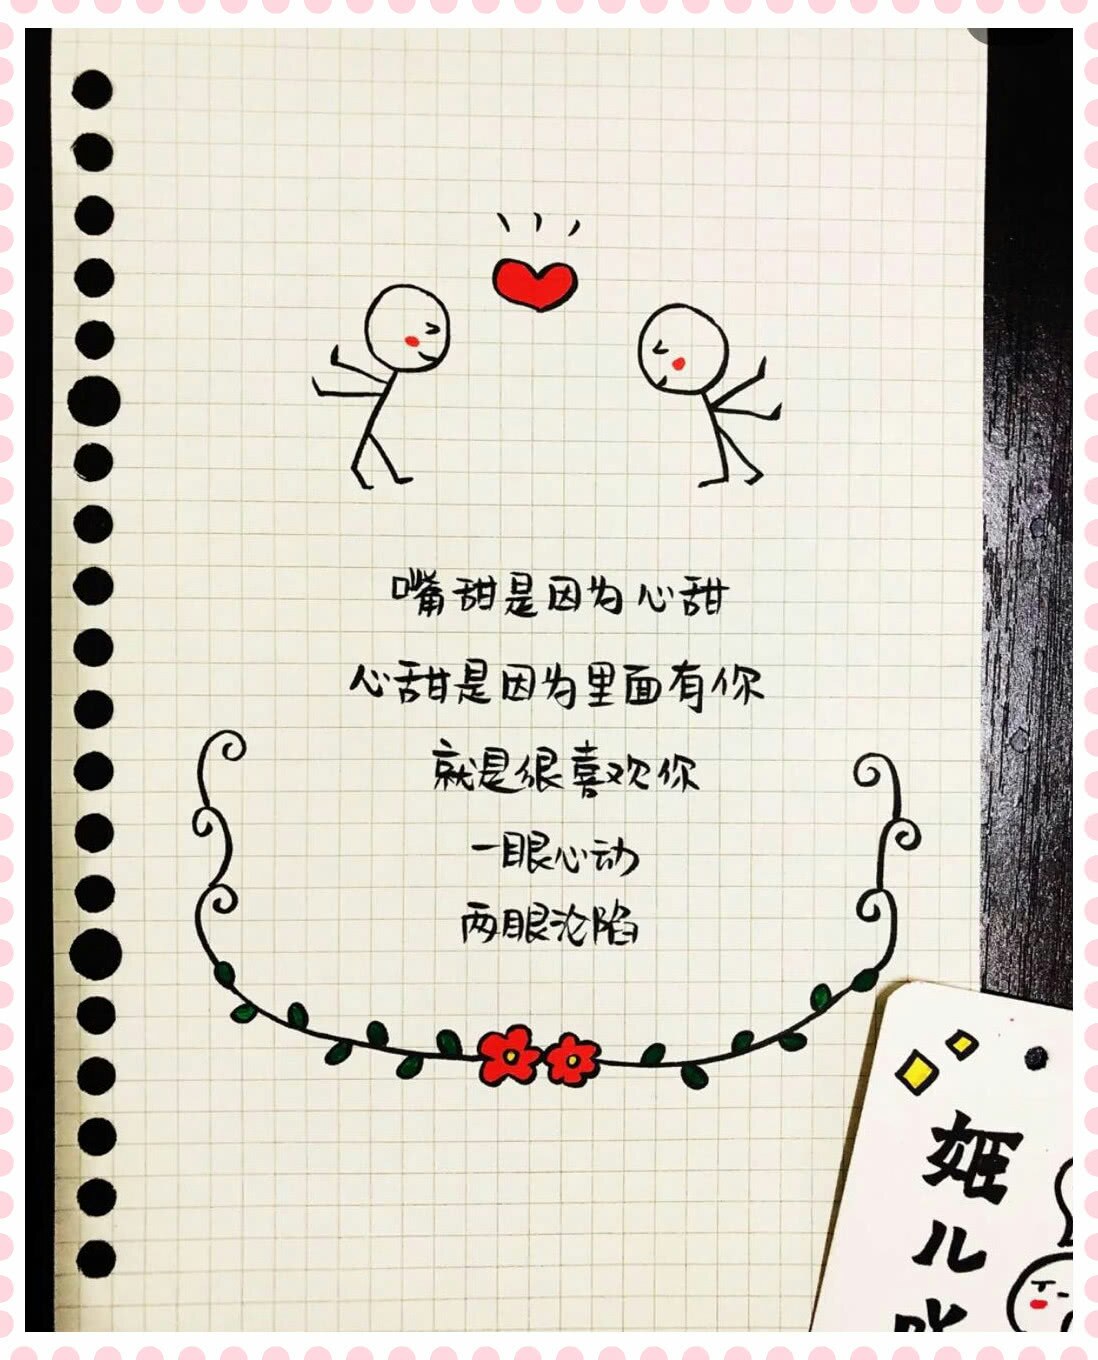 嘴甜是因为心甜
心甜是因为里面有你
就是很喜欢你
一眼心动
两眼沦陷
姬儿